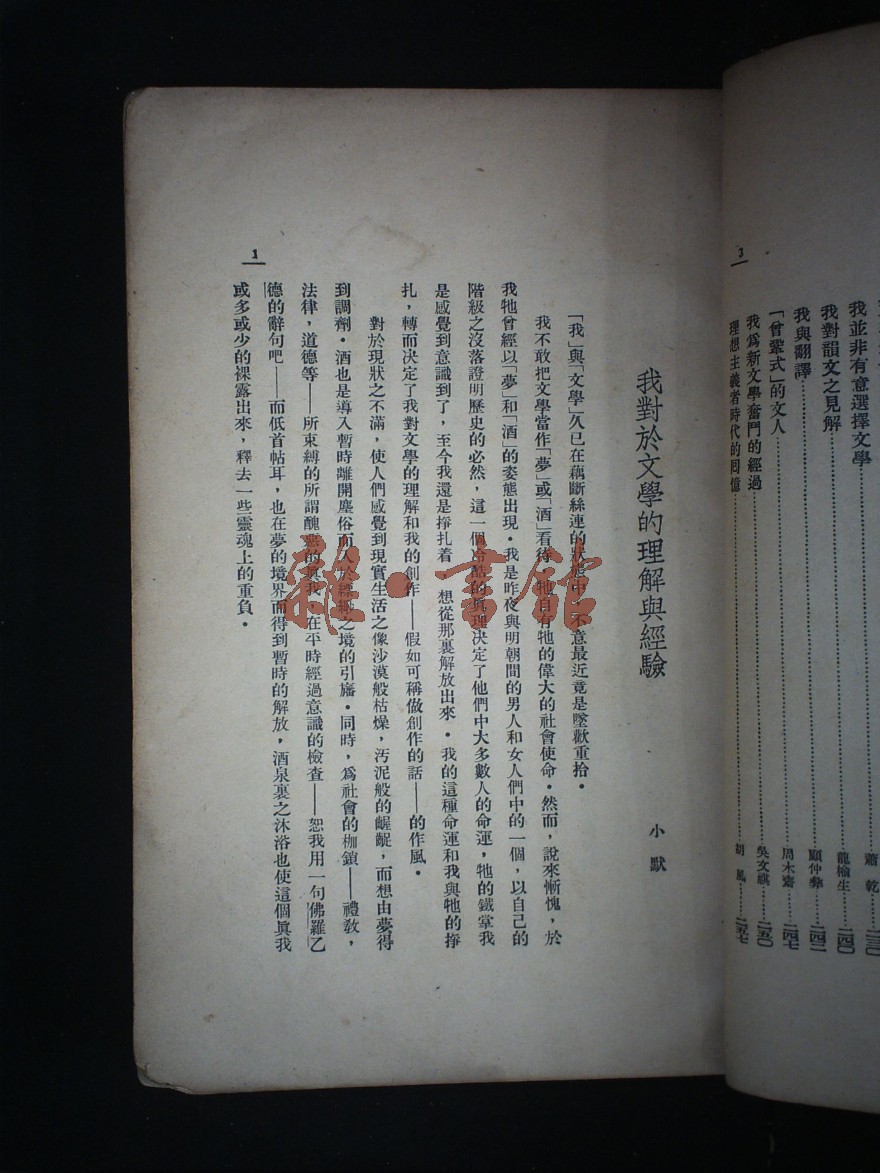 3
我並非有意選擇文學……蕭乾……二三〇
我對韻文之見解……龍楡生……二四〇
我與翻譯……顧仲彝……二四二
「曾鞏式」的文人……周木齋……二四七
我爲新文學奮鬥的經過……吳文祺……二五〇
理想主義者時代的回憶……胡風……二五七
我對於文學的理解與經驗
小默
「我」與「文學」久已在藕斷絲連的狀態中，不意最近竟是墜歡重拾。
我不敢把文學當作「夢」或「酒」看待，牠自有牠的偉大的社會使命。然而，說來慚愧，於
我牠曾經以「夢」和「酒」的姿態出現。我是昨夜與明朝間的男人和女人們中的一個，以自己的
階級之沒落證明歷史的必然，這一個冷酷的眞理決定了他們中大多數人的命運，牠的鐵掌我
是感覺到意識到了，至今我還是掙扎着，想從那裏解放出來。我的這種命運和我與牠的掙
扎，轉而決定了我對文學的理解和我的創作——假如可稱做創作的話——的作風。
對於現狀之不滿，使人們感覺到現實生活之像沙漠般枯燥，汚泥般的齷齪，而想由夢得
到調劑。酒也是導入暫時離開塵俗而入於縹緲之境的引旛。同時，爲社會的枷鎖——禮敎，
法律，道德等——所束縛的所謂醜惡的眞我，在平時經過意識的檢查——恕我用一句佛羅乙
德的辭句吧——而低首帖耳，也在夢的境界而得到暫時的解放，酒泉裏之沐浴也使這個眞我
或多或少的裸露出來，釋去一些靈魂上的重負。
1
雜·書館